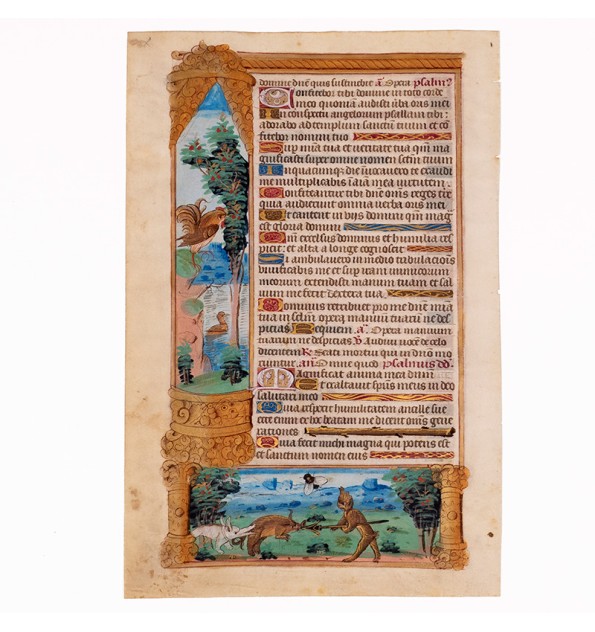 domine dñe quis sustinebit añ Opera psalm9
Confitebor tibi domine in toto corde
meo quoniã audisti ũba oris mei
In conspectu angelorum psallam tibi:
adorabo ad templum sanctũ tuum et cõ
fitebor nomini tuo
Sup mĩam tuã et veritatẽ tuã qm̃ ma
gnificasti super omne nomen sctm̃ tuum
In quacũmq; die inuocauero te exaudi
me multiplicabis ĩ aĩa mea virtutem.
Confiteantur tibi dñe omẽs reges terre
quia audierunt omnia verba oris mei
Et cantent in viis domini qm̃ mag
est gloria domini
Qm̃ excelsus dominus et humilia res
picit: et alta a longe cognoscit
Si ambulauero in medio tribulacionis
viuificabis me et sup iram inimicorum
meorum extendisti manum tuam et sal
uum me fecit dextera tua
Dominus retribuet pro me dñe mĩa
tua in sclm̃ opera manuũ tuarũ ne des
picias Requiem añ Opera manuum
tuarum ne despicias V̄ Audiui vocẽ de celo
dicentem R̃ Beati mortui qui in dño mo
riuntur añ Omne quod psalmus dd
Magnificat anima mea dñm
Et exaltauit spũs meus in deo
salutari meo
Quia respexit humilitatem ancille sue
ecce enim ex hoc beatam me dicent omẽs gene
rationes
Quia fecit michi magna qui potens est
et sanctum nomen eius